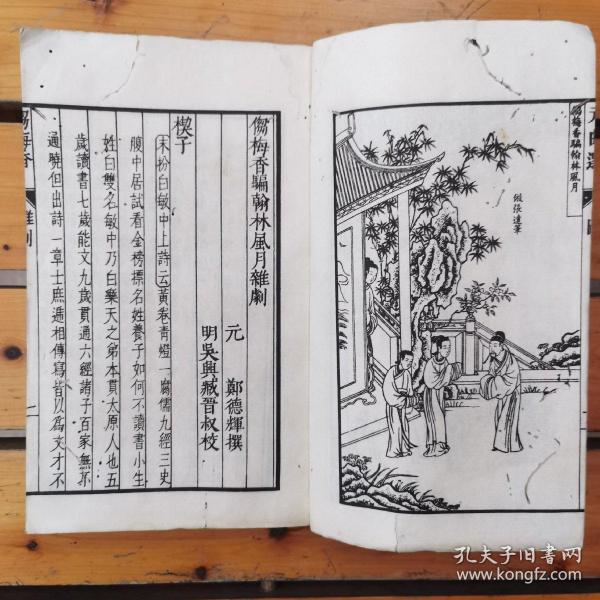 㑳梅香騙翰林風月
倣張達筆
㑳梅香騙翰林風月雜劇
元 鄭德輝撰
明吳興臧晉叔校
楔子
末扮白敏中上詩云黃卷青燈一腐儒九經三史
腹中居試看金榜標名姓養子如何不讀書小生
姓白雙名敏中乃白樂天之弟本貫太原人也五
歲讀書七歲能文九歲貫通六經諸子百家無不
通曉但出詩一章士庶遞相傳寫皆以為文才不
㑳梅香
雜劇
一
孔夫子旧书网
www.kongfz.com